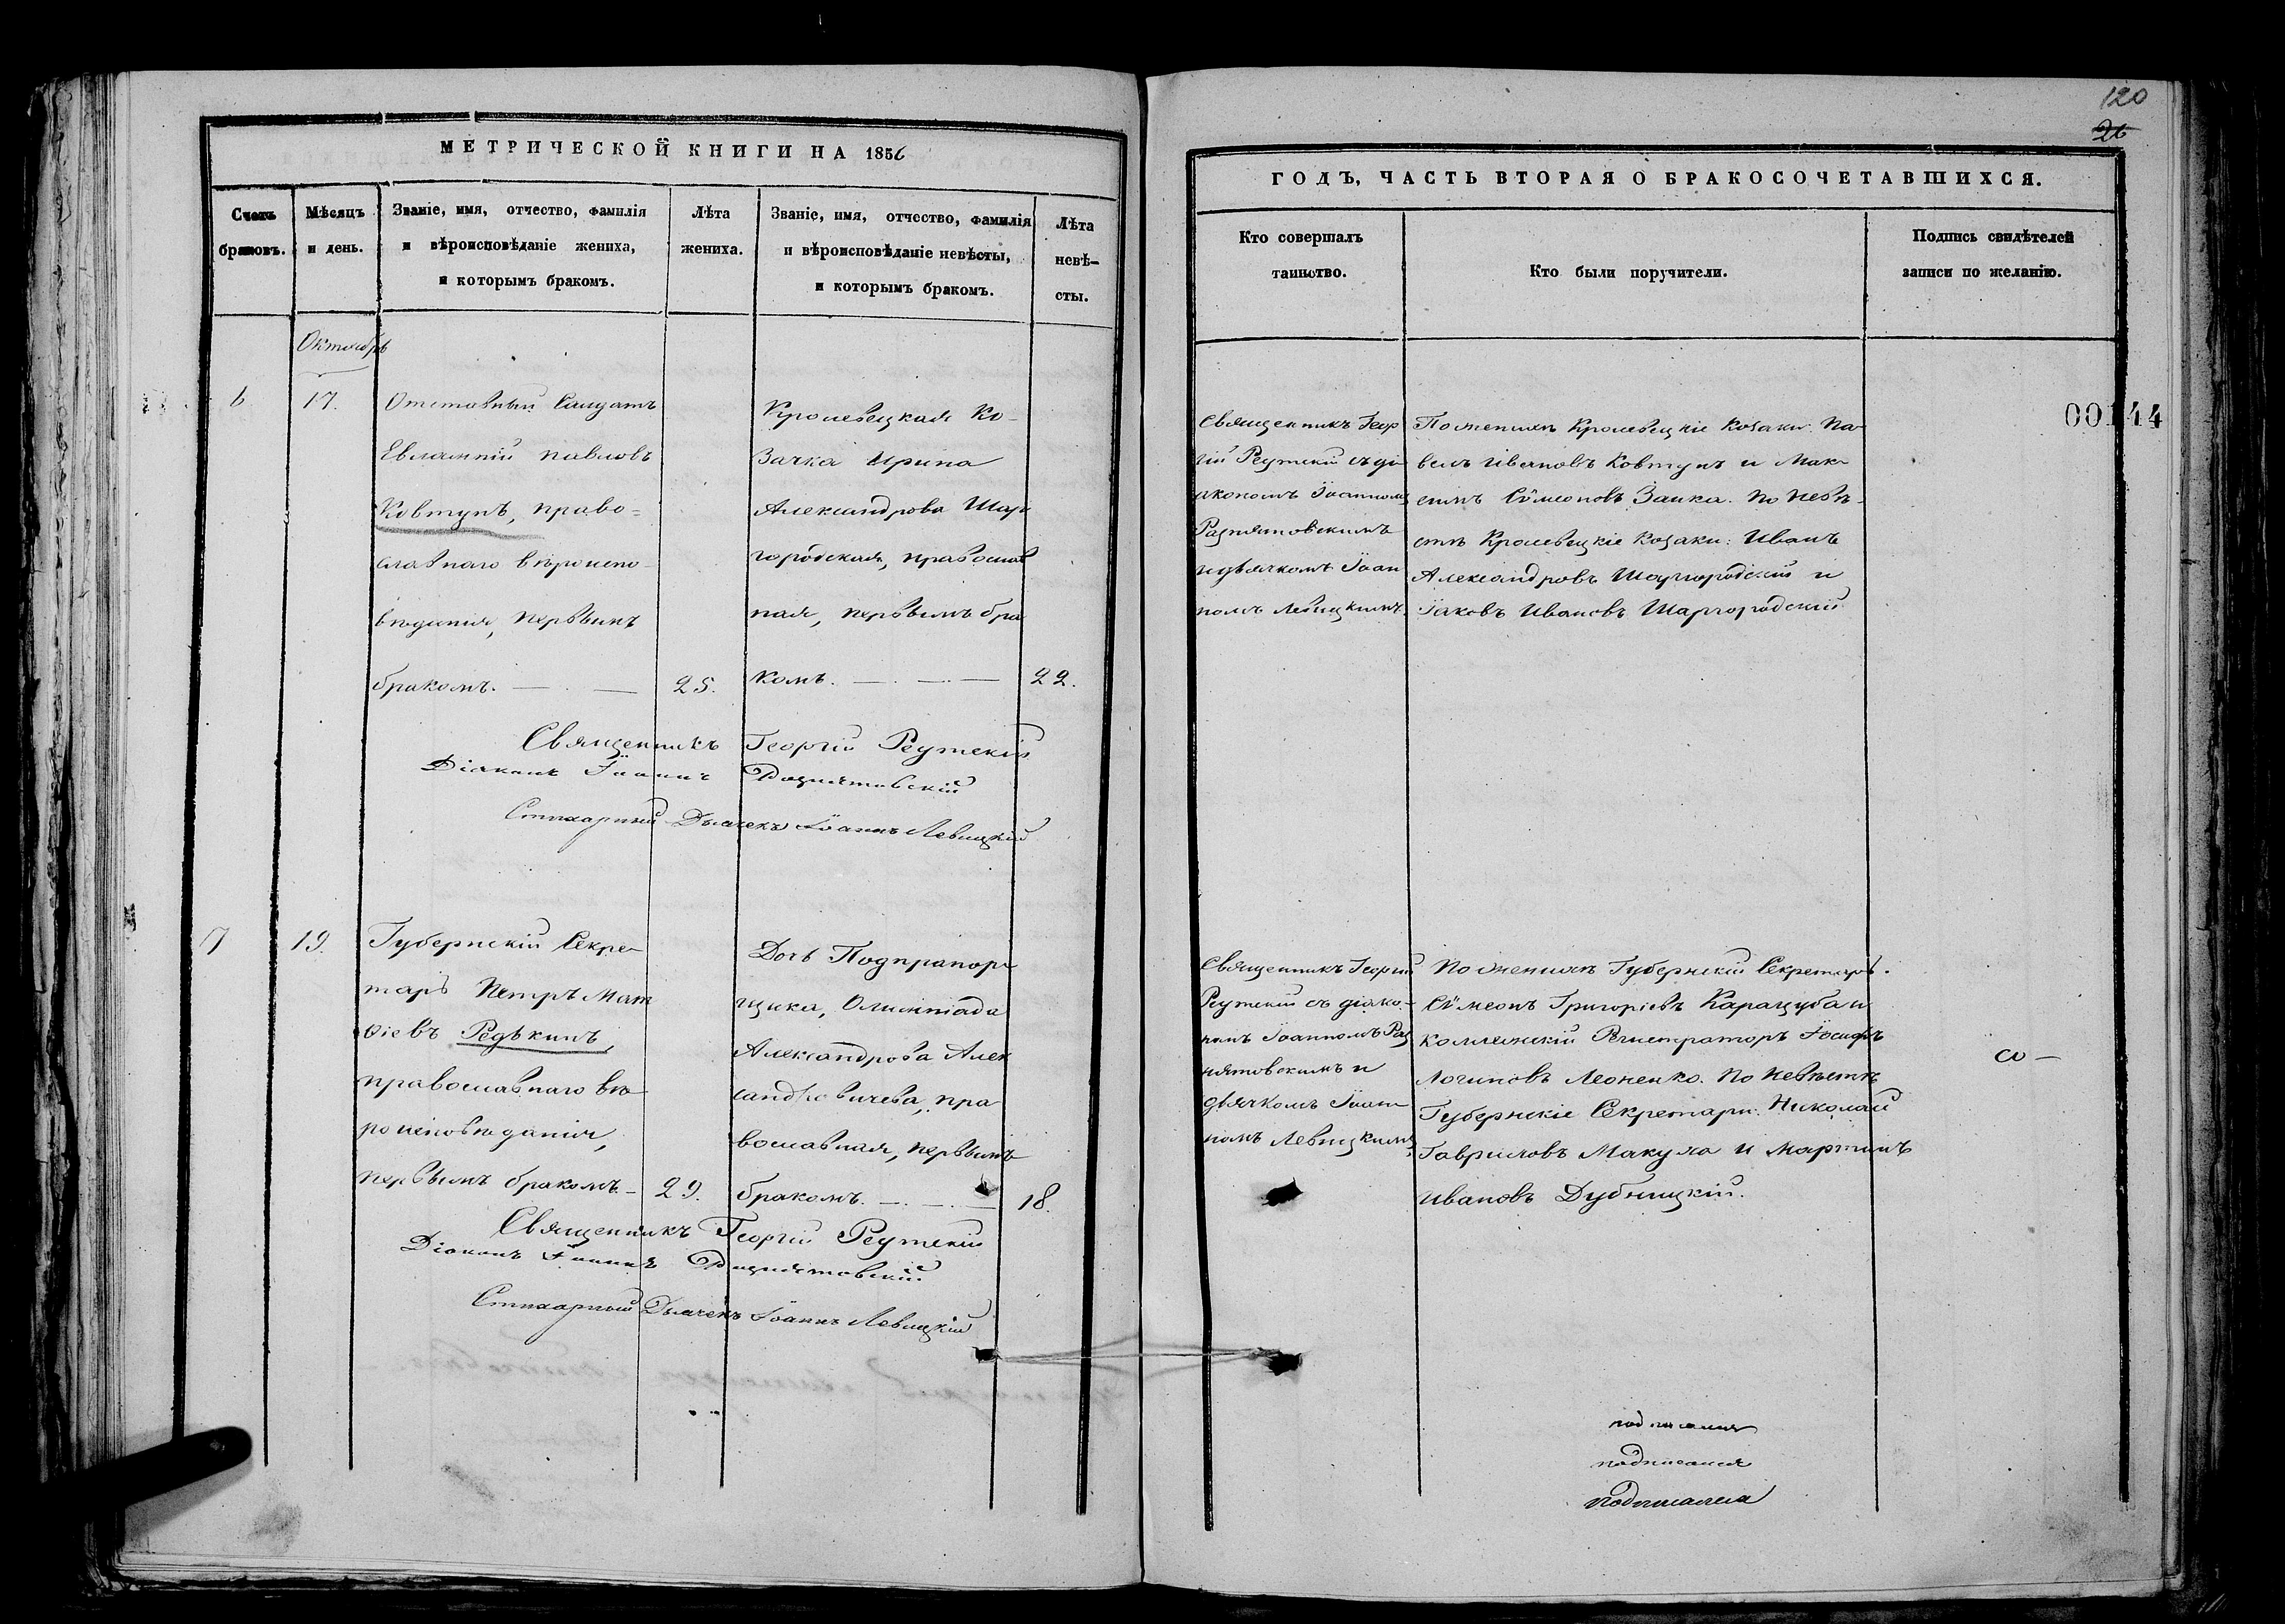 МЕТРИЧЕСКОЙ КНИГИ НА 1856
Счетъ браковъ.
Мѣсяцъ и день.
Званіе, имя, отчество, фамилія
и вѣроисповѣданіе жениха,
и которымъ бракомъ.
Лѣта жениха.
Званіе, имя, отчество, фамилія
и вѣроисповѣданіе невѣсты,
и которымъ бракомъ.
Лѣта
невѣ-
сты.
Октябрь
6
17.
Отставный Салдатъ
Евлампій Павловъ
Ковтунъ, право=
славнаго вѣроиспо-
вѣданія, первымъ
бракомъ.
25.
Кролевецкая Ко-
зачка Ирина
Александрова Шар
городская, православ
ная, первымъ бра
комъ.
22.
Священникъ Георгій Реутскій
Діаконъ Іоаннъ Разнятовскій
Стихарный Дьячекъ Іоаннъ Левицкій
7
19.
Губернскій Секре-
тарь Петръ Мат
ѳіевъ Редькинъ,
православнаго вѣ-
роисповѣданія,
первымъ бракомъ.
29.
Дочь Подпрапор
щика, Олимпіада
Александрова Алек
сандровичева, пра
вославная, первымъ
бракомъ.
18.
Священникъ Георгій Реутскій
Діаконъ Іоаннъ Разнятовскій
Стихарный Дьячекъ Іоаннъ Левицкій
120
26
ГОДЪ, ЧАСТЬ ВТОРАЯ О БРАКОСОЧЕТАВШИХСЯ.
Кто совершалъ
таинство.
Кто были поручители.
Подпись свидѣтелей
записи по желанію.
00144
Священникъ Геор
гій Реутскій съ ді
акономъ Іоанномъ
Разнятовскимъ
и дьячкомъ Іоан
номъ Левицкимъ.
По женихѣ Кролевецкіе Козаки: Па
велъ Ивановъ Ковтунъ и Мак-
симъ Сѵмеоновъ Заика. По невѣ-
стѣ Кролевецкіе Козаки: Иванъ
Александровъ Шаргородскій и
Іаковъ Ивановъ Шаргородскій
Священникъ Георгій
Реутскій съ діако-
номъ Іоанномъ Раз
нятовскимъ и
дьячкомъ Іоан
номъ Левицкимъ.
По женихѣ Губернскій Секретарь.
Сѵмеонъ Григорієвъ Карацуба и
коллежскій Регистраторъ Іосифъ
Логиновъ Леоненко. По невѣстѣ
Губернскіе Секретари: Николай
Гавриловъ Макуха и Мартинъ
Ивановъ Дубницкій.
подписался
подписался
подписался